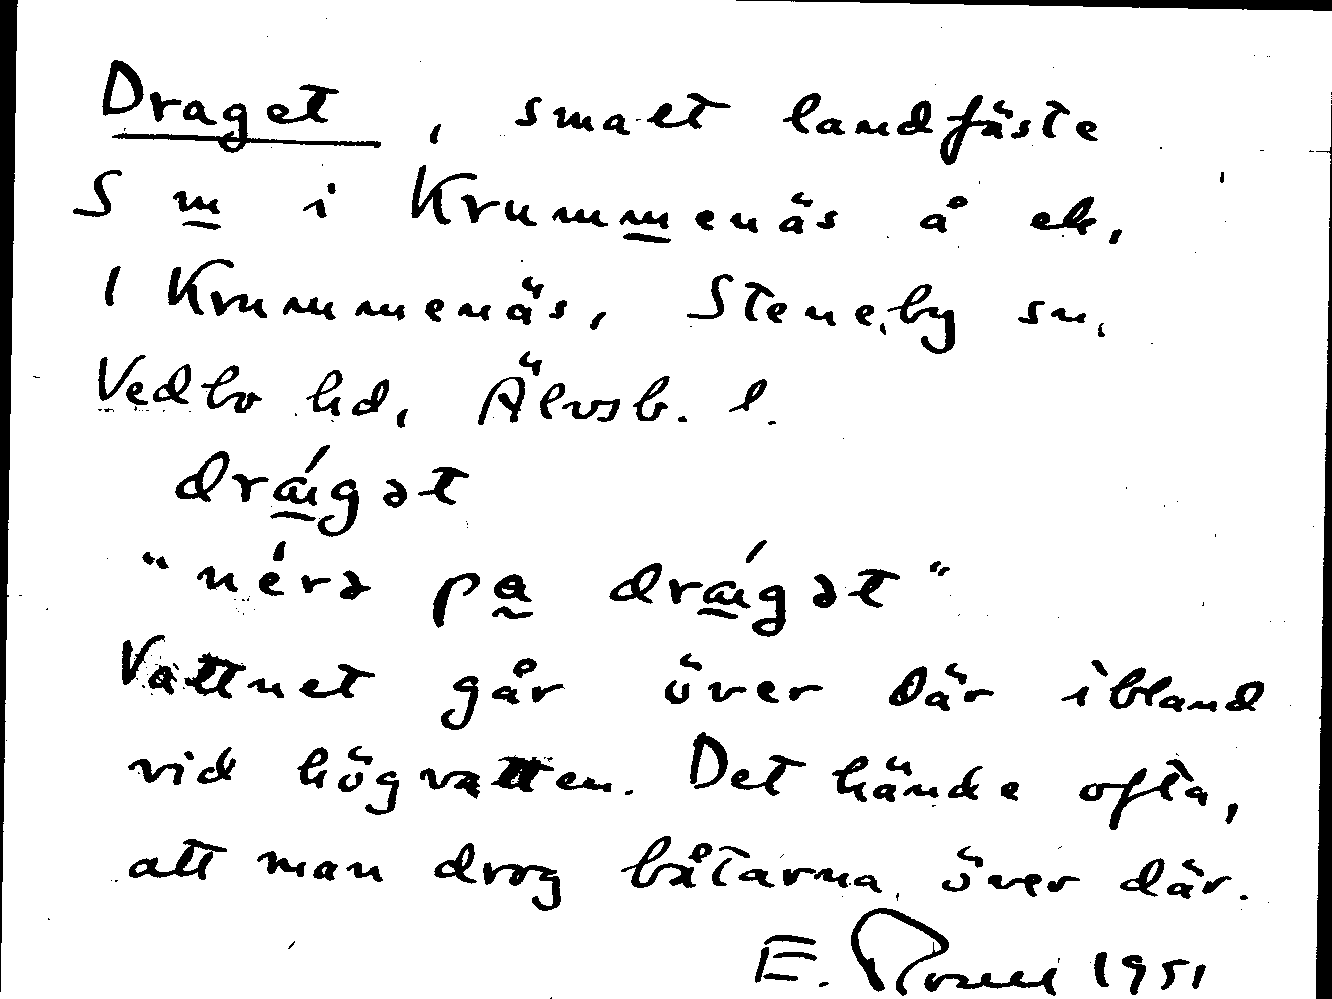 Draget, smalt landfäste
S m i Krummenäs å ek,
1 Krummenäs, Steneby sn,
Vedbo hd, Älvsb. l.
drágət
"nérə pa drágət"
Vattnet går över där ibland
vid högvatten. Det hände ofta,
att man drog båtarna över där.
E. Rosell 1951